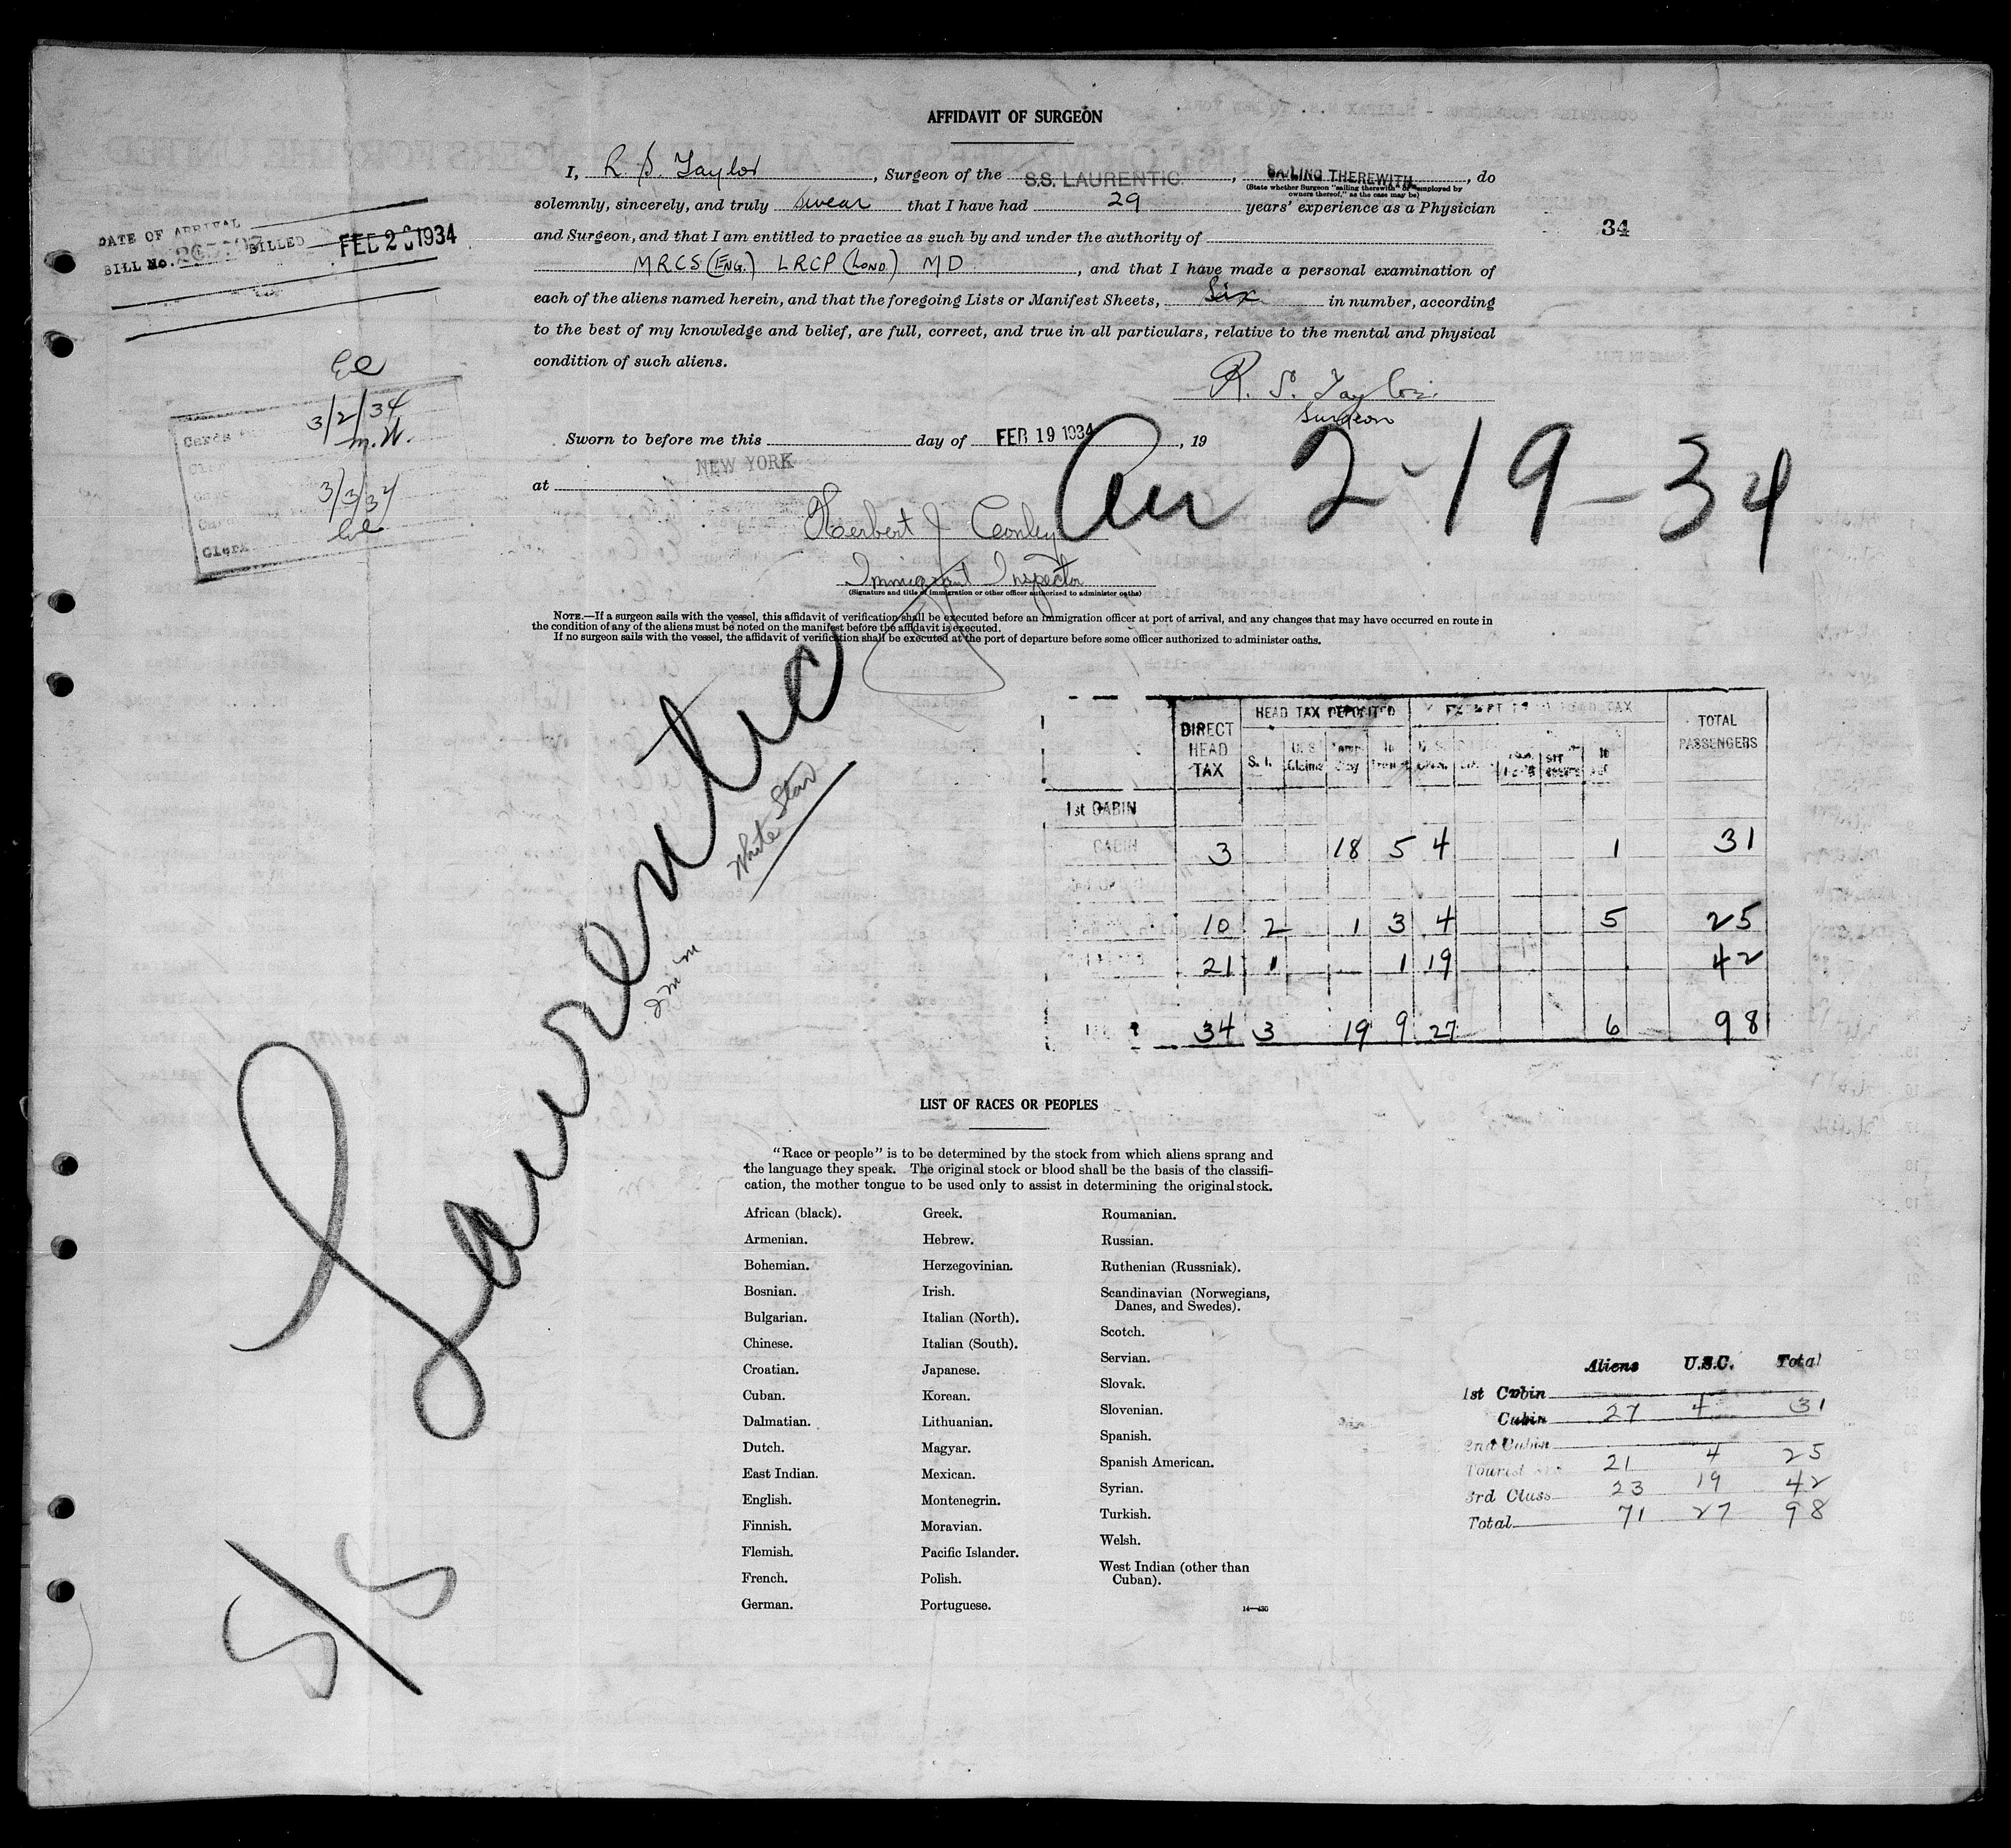 AFFIDAVIT OF SURGEON
I, R. S. Taylor, Surgeon of the S.S. LAURENTIC, SAILING THEREWITH, do
(State whether Surgeon "sailing therewith" or "employed by
owners thereof," as the case may be)
solemnly, sincerely, and truly swear that I have had 29 years' experience as a Physician
34
and Surgeon, and that I am entitled to practice as such by and under the authority of
MRCS (ENG.) LRCP (LOND.) MD, and that I have made a personal examination of
each of the aliens named herein, and that the foregoing Lists or Manifest Sheets, Six in number, according
to the best of my knowledge and belief, are full, correct, and true in all particulars, relative to the mental and physical
condition of such aliens.
R. S. Taylor
Surgeon
DATE OF ARRIVAL
BILL No. BILLED FEB 2 1934
El
Cards
3/2/34
m.W.
3/3/34
El
Clerk
Sworn to before me this day of FEB 19 1934, 19
at NEW YORK
Arr 2-19-34
Herbert J Conley
Immigrant Inspector
(Signature and title of immigration or other officer authorized to administer oaths)
NOTE.—If a surgeon sails with the vessel, this affidavit of verification shall be executed before an immigration officer at port of arrival, and any changes that may have occurred en route in
the condition of any of the aliens must be noted on the manifest before the affidavit is executed.
If no surgeon sails with the vessel, the affidavit of verification shall be executed at the port of departure before some officer authorized to administer oaths.
S/S Laurentic
White Star
DIRECT HEAD TAX HEAD TAX DEPOSITED EXEMPT HEAD TAX TOTAL PASSENGERS
S. I. U.S. Claims
1st CABIN
CABIN 3 18 5 4 1 31
10 2 1 3 4 5 25
21 1 1 19 42
34 3 19 9 27 6 98
LIST OF RACES OR PEOPLES
"Race or people" is to be determined by the stock from which aliens sprang and
the language they speak. The original stock or blood shall be the basis of the classifi-
cation, the mother tongue to be used only to assist in determining the original stock.
African (black).
Armenian.
Bohemian.
Bosnian.
Bulgarian.
Chinese.
Croatian.
Cuban.
Dalmatian.
Dutch.
East Indian.
English.
Finnish.
Flemish.
French.
German.
Greek.
Hebrew.
Herzegovinian.
Irish.
Italian (North).
Italian (South).
Japanese.
Korean.
Lithuanian.
Magyar.
Mexican.
Montenegrin.
Moravian.
Pacific Islander.
Polish.
Portuguese.
Roumanian.
Russian.
Ruthenian (Russniak).
Scandinavian (Norwegians,
Danes, and Swedes).
Scotch.
Servian.
Slovak.
Slovenian.
Spanish.
Spanish American.
Syrian.
Turkish.
Welsh.
West Indian (other than
Cuban).
14—430
Aliens U.S.C. Total
1st Cabin
Cabin 27 4 31
2nd Cabin
Tourist 21 4 25
3rd Class 23 19 42
Total 71 27 98